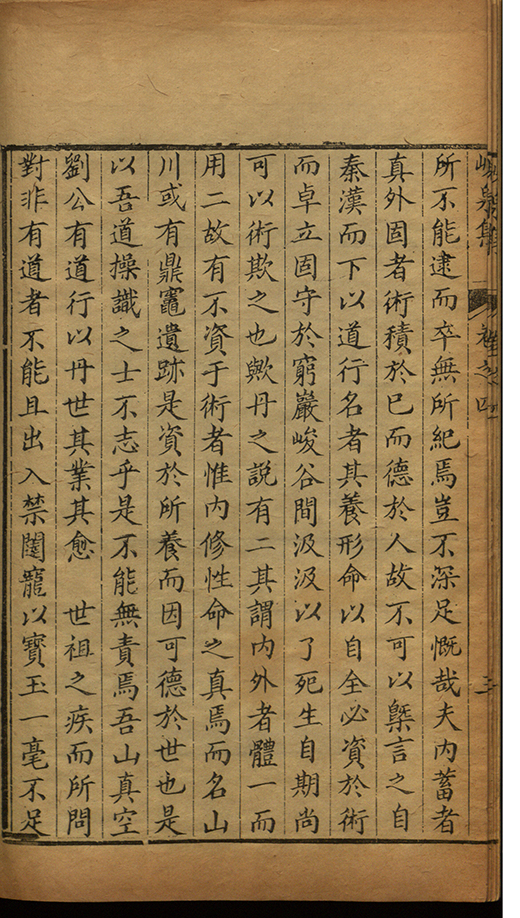 峴泉集 卷之四 三
所不能逮而卒無所紀焉豈不深足慨哉夫内蓄者
真外固者術積於已而德於人故不可以槩言之自
秦漢而下以道行名者其養形命以自全必資於術
而卓立固守於窮巖峻谷間汲汲以了死生自期尚
可以術欺之也歟丹之説有二其謂内外者體一而
用二故有不資于術者惟内修性命之真焉而名山
川或有鼎竈遺跡是資於所養而因可德於世也是
以吾道操識之士不志乎是不能無責焉吾山真空
劉公有道行以丹世其業其愈 世祖之疾而所問
對非有道者不能且出入禁闥寵以寳玉一毫不足